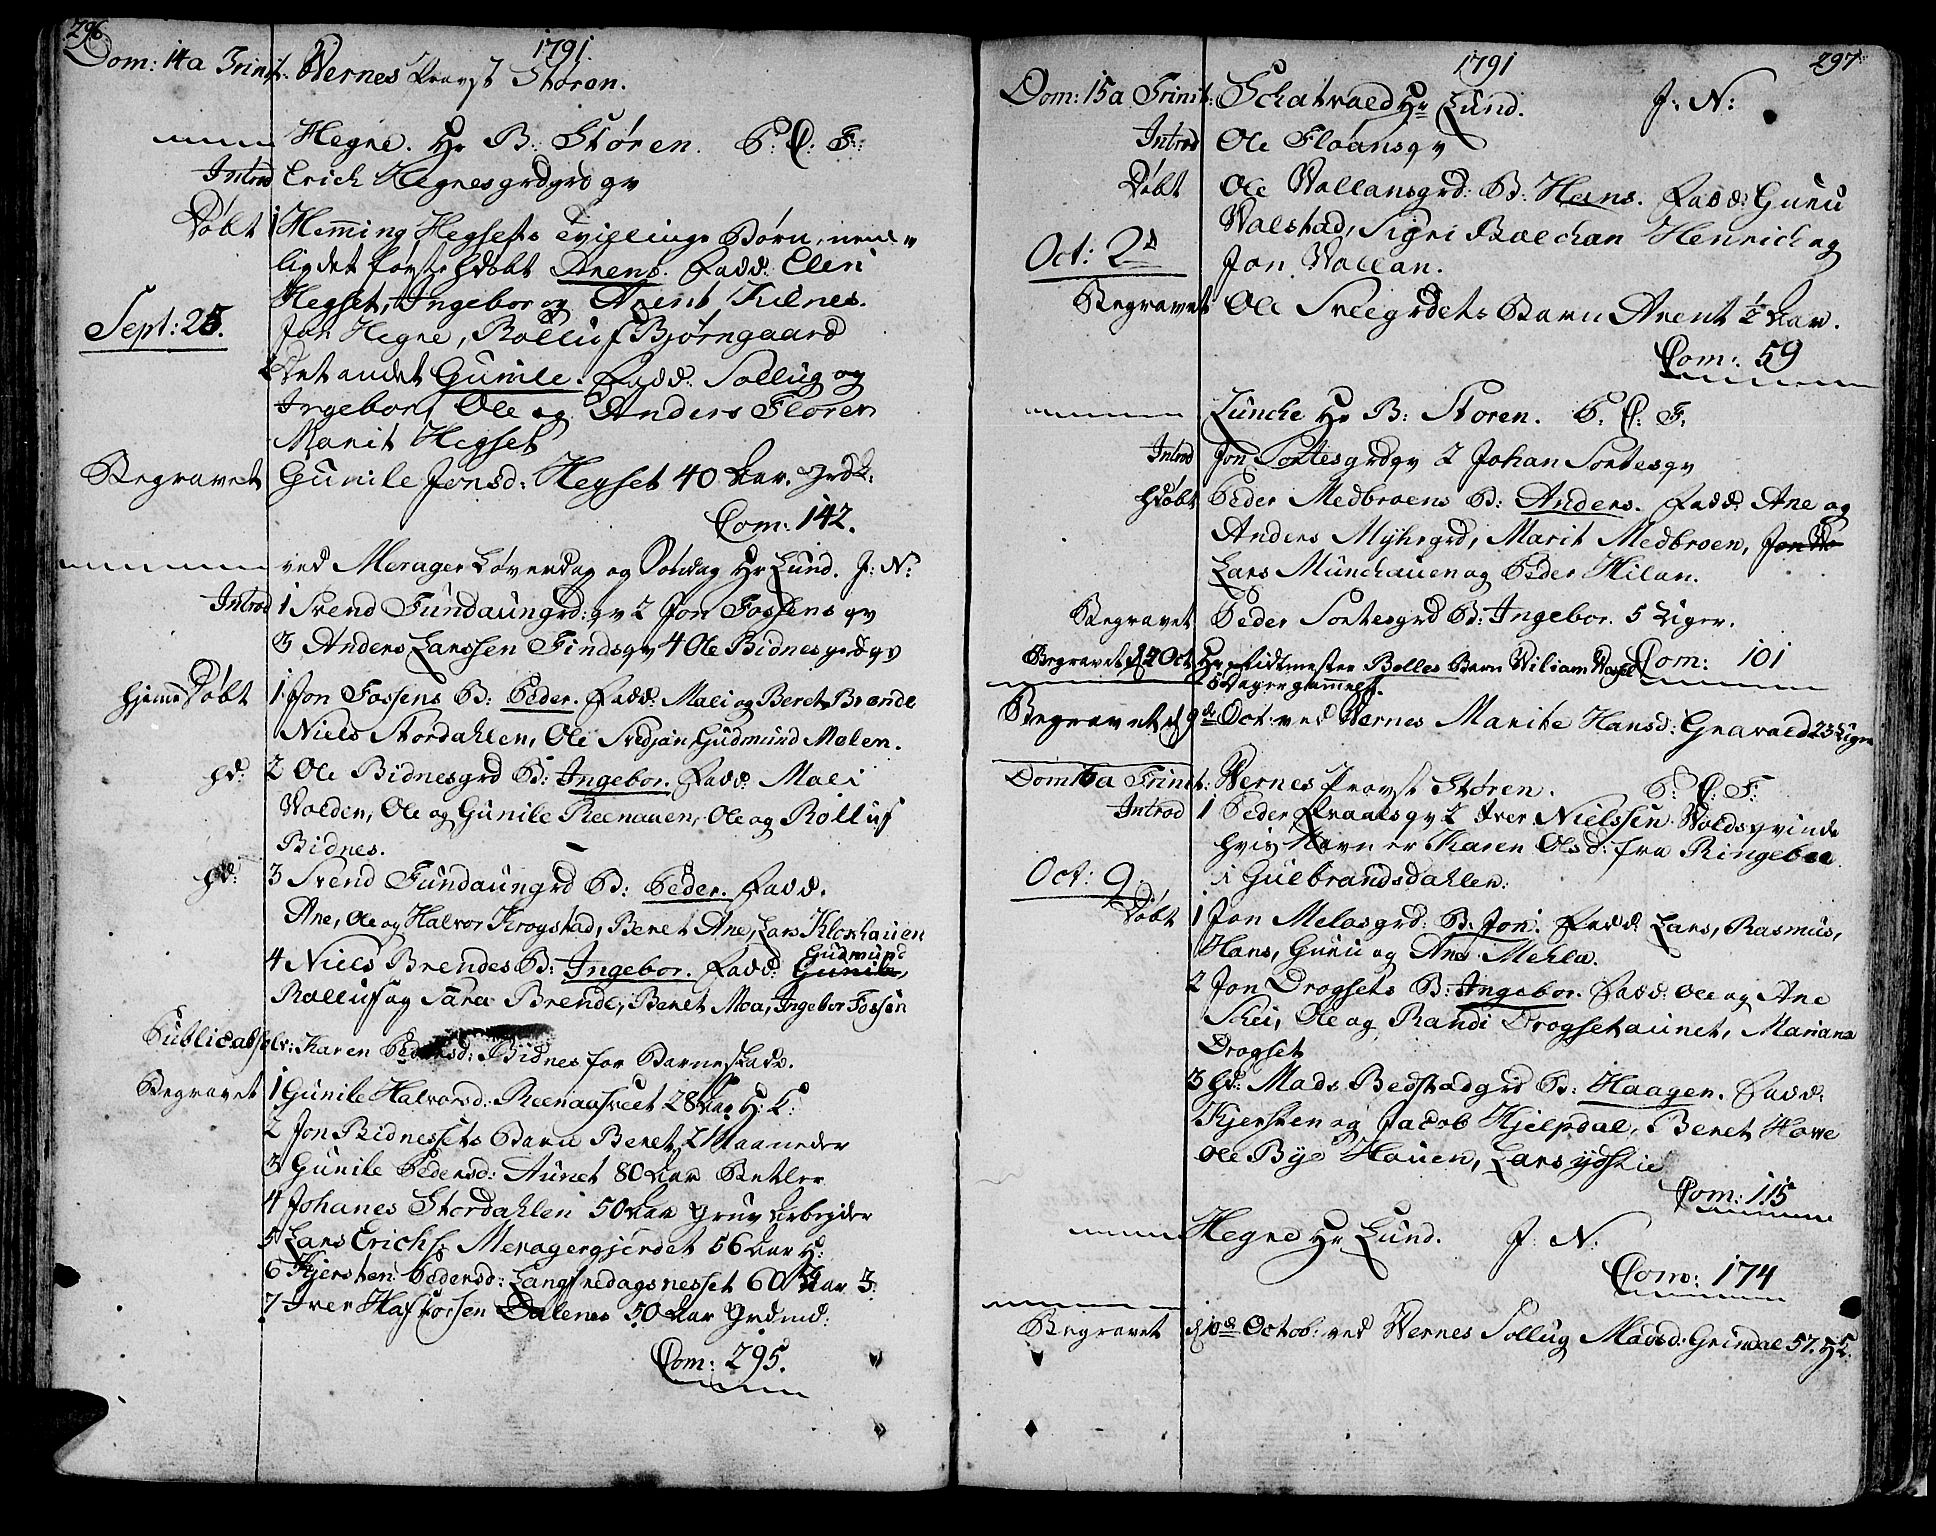 296.
1791.
Dom: 14 a Trinit. Wernes Provst Støren.
Hegne. Hr B: Støren. P. C. F:
Introd Erich Hegnesgrdgrd qv
Døbt 1 Hemming Hegsets Tvillinge Børn, nem-
lig det første hdøbt Arent. Fadd: Eleri
Hegset, Ingebor og Arent Kilnes.
Sept: 25. Jon Hegne, Rolluf Bjørngaard
Det andet Gunile. Fadd: Sollug og
Ingebor, Ole og Anders Floren
Marit Hegset
Begravet Gunile Jonsd: Hegset 40 Aar. grdk.
Com: 142.
ved Merager Løverdag og Søndag Hr Lund. J: N:
Introd 1 Svend Fundaungrd: qv 2 Jon Fossens qv
3 Anders Larssen Findsqv 4 Ole Bidnesgrdqv
hjeme Døbt 1 Jon Fossens B: Peder. Fadd: Mali og Beret Brende
Niels Stordahlen, Ole Svedjan, Gudmund Molen.
hd: 2 Ole Bidnesgrd B: Ingebor. Fadd: Mali
Volden, Ole og Gunile Reenauen, Ole og Rolluf
Bidnes.
hd: 3 Svend Fundaungrd B: Peder. Fadd.
Ane, Ole og Halvor Krogstad, Beret Ane, Lars Kloxhauen
4 Niels Brendes B: Ingebor. Fadd: Gunile, Gudmund
Rolluf og Sara Brende, Beret Moa, Ingebor Fossen
Public absolv: Karen Pedersd: Bidnes for Barneflade.
Begravet 1 Gunile Halvorsd: Reenaasveet 28 Aar H: K:
2 Jon Bidnessets Barn Beret 2 Maaneder
3 Gunile Pedersd: Aunet 80 Aar Betler
4 Johanes Stordahlen 50 Aar gruv Arbejder
5 Lars Erichs: Meragergjerdet 56 Aar H:
6 Kjersten Pedersd: Langfredagsnesset 60 Aar 3
7 Iver Hafsorsen Dalenes 50 Aar grdmd:
Com: 295.
1791
297.
Dom: 15 a Trinit: Schatvold Hr Lund. J: N:
Introd Ole Floansqv
Døbt Ole Vollansgrd: B: Hans. Fadd: Guru
Valstad, Sigri Balchan Henrich og
Oct: 2d Jon Vollan.
Begravet Ole Sveegrdets Barn Arent ½ Aar.
Com: 59
Lunche Hr B: Støren. P. C. F.
Introd Jon Sortesgrdqv 2 Johan Sortesqv
hdøbt Peder Medbroens B: Anders. Fadd: Ane og
Anders Myhrgrd, Marit Medbroen, Jon
Lars Munchauen og Peder Milan.
Begravet Peder Sortesgrd B: Ingebor. 5 Uger.
Com: 101
Begravet d 7 Oct. Hr Ridtmester Belles Barn Wiliam
5 Dager gammelt.
Begravet d 9de Oct: ved Wernes Marite Hansd: Gravald 23 Uger
Dom 16 a Trinit: Wernes Provst Støren. P: C: F:
Introd 1 Peder Praalsqv 2 Iver Nielssen Voldsqvinde
hvis Navn er Karen Olsd: fra Ringeboe
Oct: 9. i Gulbrandsdahlen.
Døbt 1 Jon Melasgrd: B: Jon. Fadd: Lars, Rasmus,
Hans, Guru og Ane Mehla.
2 Jon Drogsets B: Ingebor. Fadd: Ole og Ane
Skei, Ole og Randi Drogsetaunet, Mariana
Drogset
3 hd: Mads Bedstadgrd B: Haagen. Fadd:
Kjersten og Jacob Hjelpdal, Beret Hove
Ole Bye Hauen, Lars ydstie
Com: 115
Hegne Hr Lund. J: N:
Com: 174
Begravet d 10de Octob: ved Wernes Sollug Madsd: Grindal 57. HK.